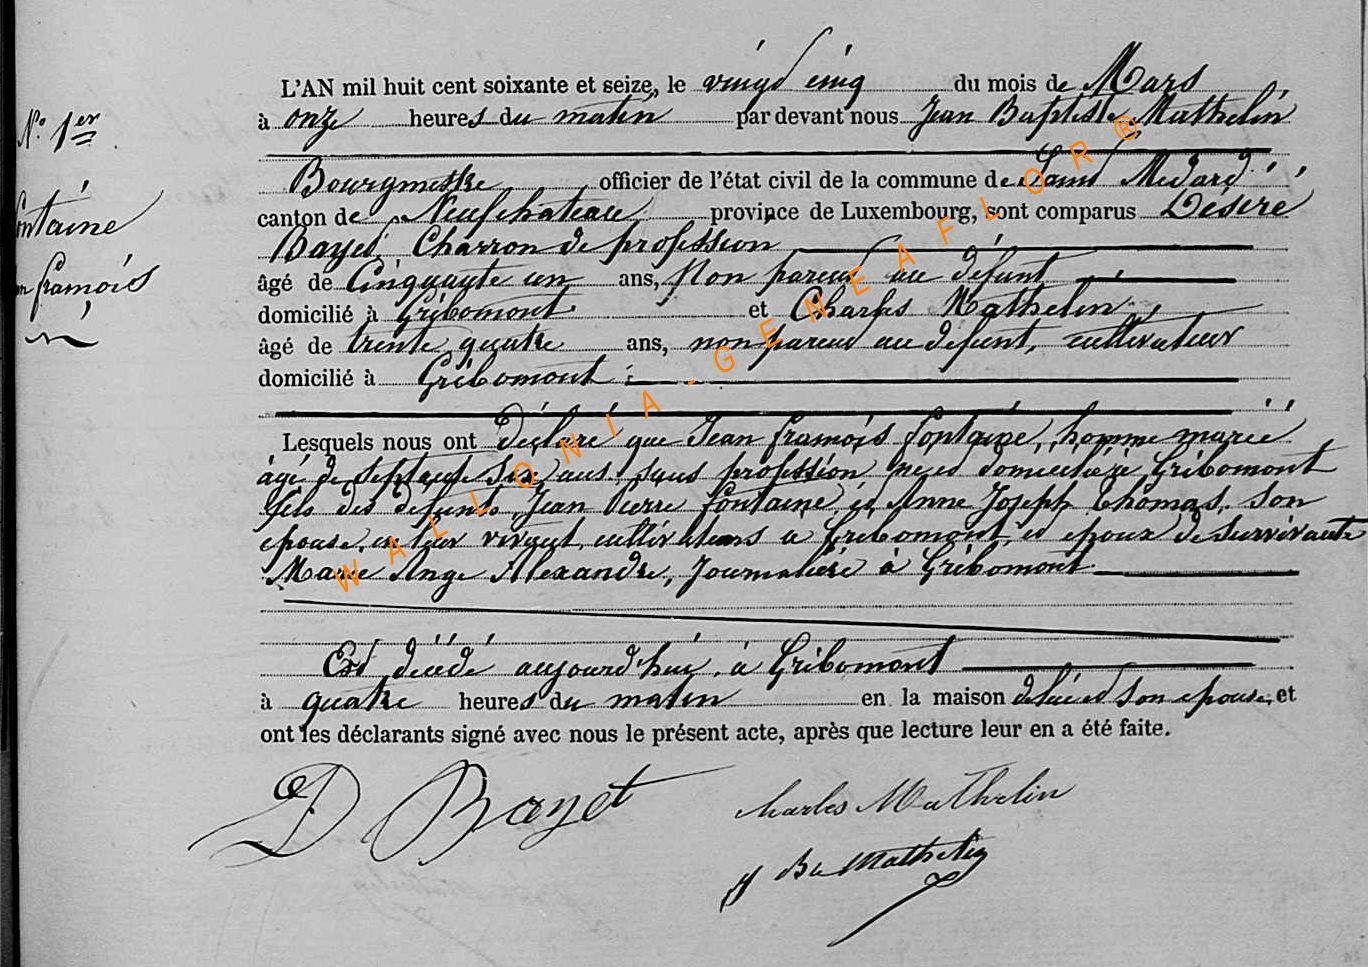 N° 1er
ontaine
n françois
L'AN mil huit cent soixante et seize, le vingt cinq du mois de Mars
à onze heures du matin par devant nous Jean Baptiste Mathelin
Bourgmestre officier de l'état civil de la commune de Saint Médard
canton de Neufchateau province de Luxembourg, sont comparus Désiré
Bayet, Charron de profession
âgé de Cinquante un ans, Non parent au défunt
domicilié à Gribomont et Charles Mathelin,
âgé de trente quatre ans, non parent au défunt, cultivateur
domicilié à Gribomont
Lesquels nous ont déclaré que Jean françois fontaine, homme marié
âgé de septante six ans sans profession né et domicilié à Gribomont
fils des défunts Jean Pierre fontaine et Anne Joseph Thomas, son
épouse, en leur vivant, cultivateurs à Gribomont, et époux de survivante
Marie Ange Alexandre, Journalière à Gribomont
Est décédé aujourd'hui, à Gribomont
à quatre heures du matin en la maison de lui et son épouse, et
ont les déclarants signé avec nous le présent acte, après que lecture leur en a été faite.
D Bayet
Charles Mathelin
J Bte Mathelin
WALLONIA-GENEAFLOR®